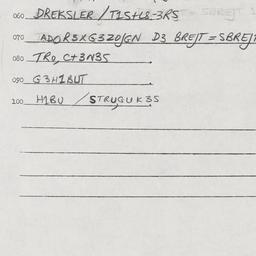 060 DREKSLER / T1S+L8-3RS
070 ADOR3XG3Z0/GN D3 BREJT = SBREJT
080 TRO, C+3N3S
090 G3H1BUT
100 H1BU / STRUGUK3S